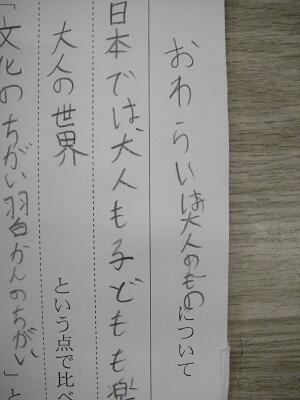 おわらいは大人のものについて
日本では大人も子どもも楽
大人の世界 という点で比べ
「文化のちがい習かんのちがい」と